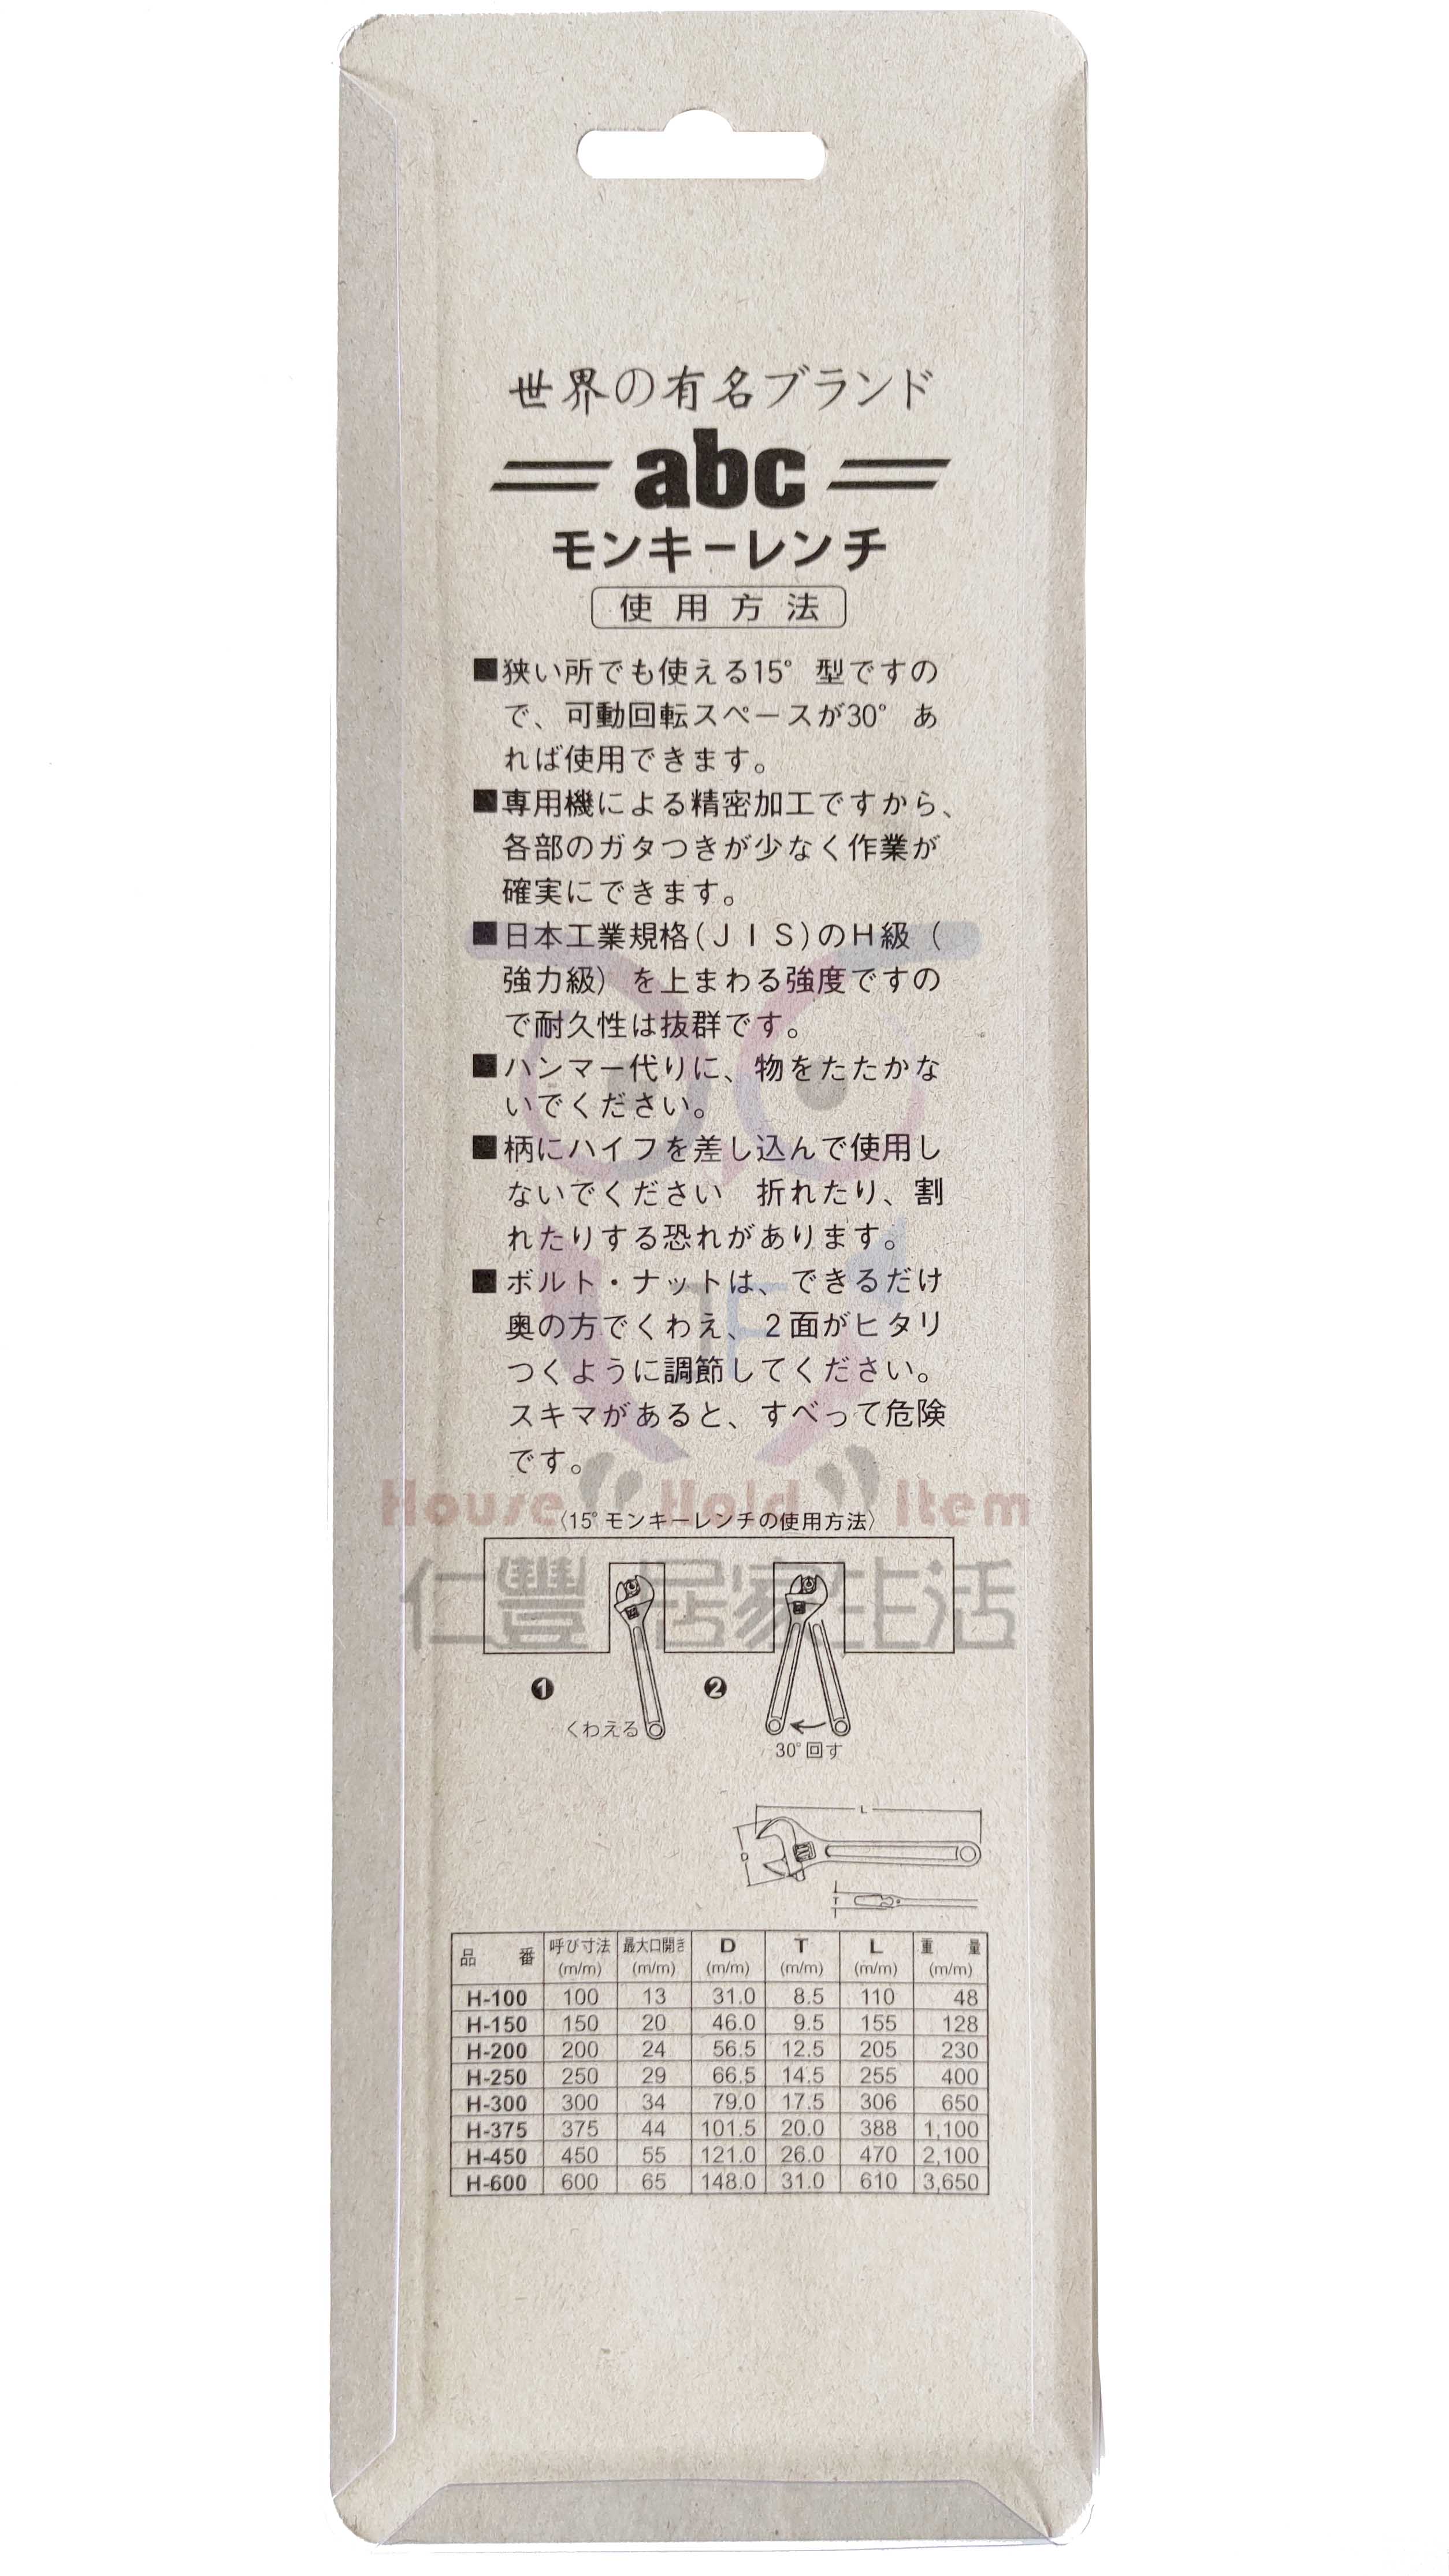 世界の有名ブランド
abc
モンキーレンチ
使用方法
■狭い所でも使える15°型ですの
で、可動回転スペースが30°あ
れば使用できます。
■専用機による精密加工ですから、
各部のガタつきが少なく作業が
確実にできます。
■日本工業規格(JIS)のH級(
強力級)を上まわる強度ですの
で耐久性は抜群です。
■ハンマー代りに、物をたたかな
いでください。
■柄にハイフを差し込んで使用し
ないでください 折れたり、割
れたりする恐れがあります。
■ボルト・ナットは、できるだけ
奥の方でくわえ、2面がヒタリ
つくように調節してください。
スキマがあると、すべって危険
です。
House Hold Item
〈15°モンキーレンチの使用方法〉
仁豐 居家生活
❶ ❷
くわえる
30°回す
L
D
T
品番 呼び寸法 最大口開き D T L 重量
(m/m) (m/m) (m/m) (m/m) (m/m) (m/m)
H-100 100 13 31.0 8.5 110 48
H-150 150 20 46.0 9.5 155 128
H-200 200 24 56.5 12.5 205 230
H-250 250 29 66.5 14.5 255 400
H-300 300 34 79.0 17.5 306 650
H-375 375 44 101.5 20.0 388 1,100
H-450 450 55 121.0 26.0 470 2,100
H-600 600 65 148.0 31.0 610 3,650